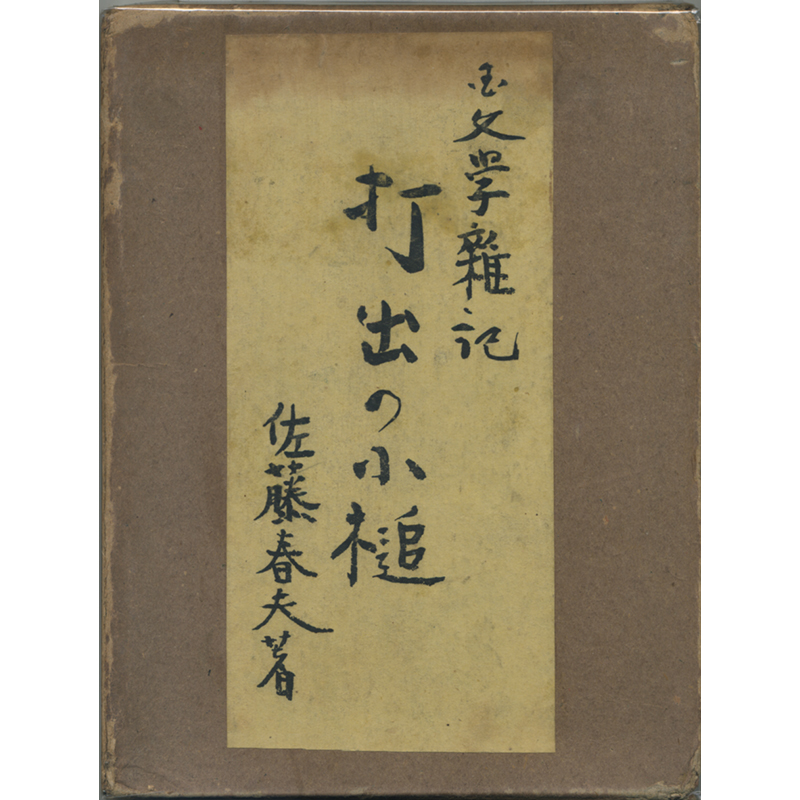 国文学雜記
打出の小槌
佐藤春夫著